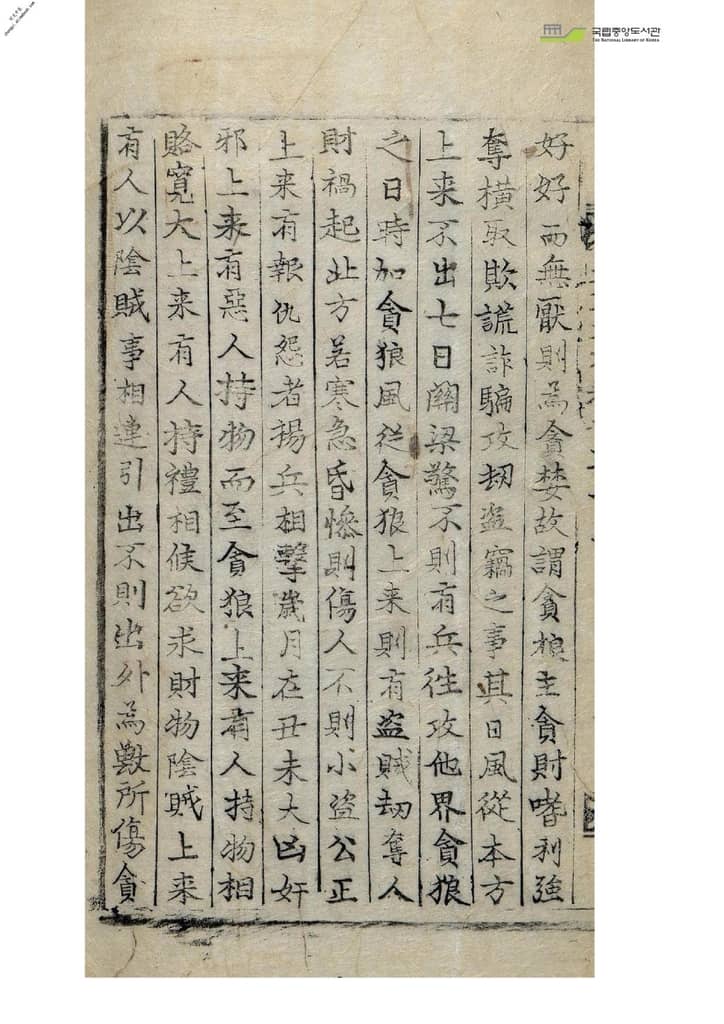 好好而無厭則為貪婪故謂貪狼主貪財嗜利強
奪橫取欺謊詐騙攻刼盗竊之事其日風從本方
上来不出七日關梁驚不則有兵徃攻他界貪狼
之日時加貪狼風従貪狼上来則有盗賊劫奪人
財禍起北方若寒急昏慘則傷人不則小盗公正
上来有報仇怨者揚兵相擊歲月在丑未大凶奸
邪上来有惡人持物而至貪狼上来有人持物相
賂寬大上来有人持禮相候欲求財物陰賊上来
有人以陰賊事相連引出不則出外為獸所傷貪
국립중앙도서관
THE NATIONAL LIBRARY OF KOREA